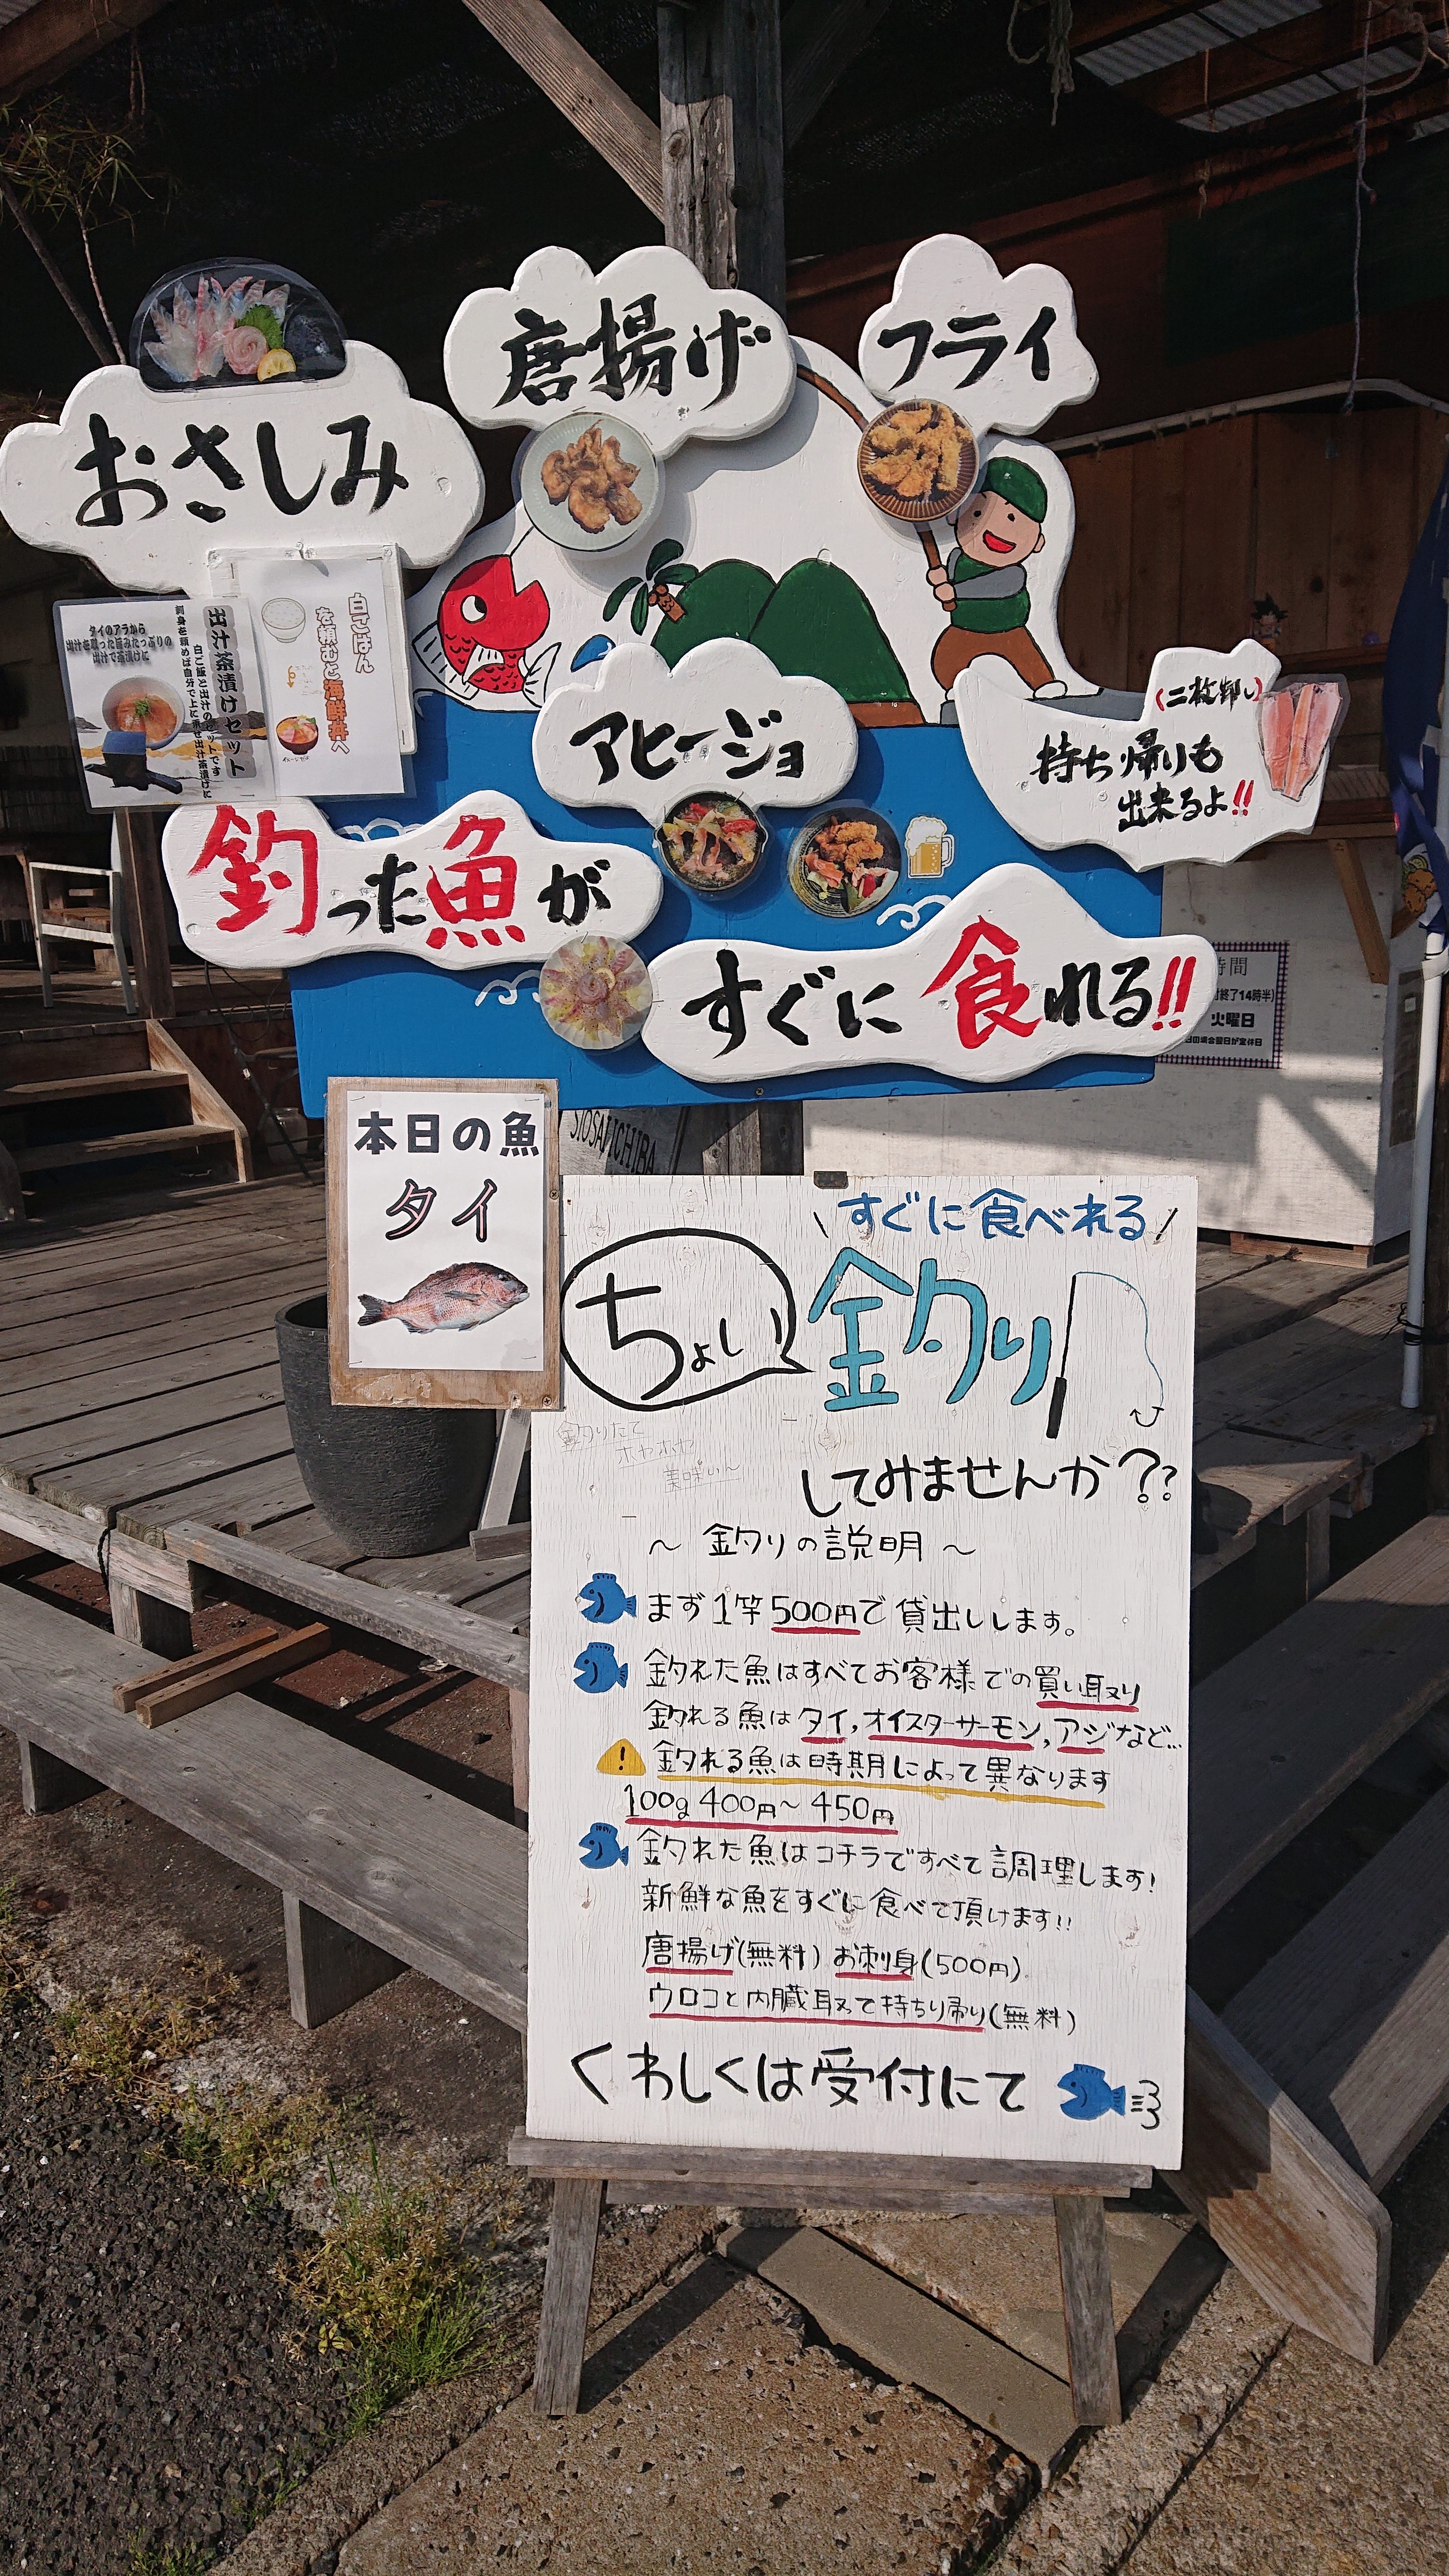 おさしみ
唐揚げ
フライ
出汁茶漬けセット
タイのアラから
出汁を取った旨みたっぷりの
出汁で茶漬けに
白ごはん
を頼むと海鮮丼へ
アヒージョ
(二枚卸し)
持ち帰りも
出来るよ!!
釣った魚が
すぐに食れる!!
時間
終了14時半)
火曜日
本日の魚
タイ
すぐに食べれる
ちょい
釣り
釣りたて
ホヤホヤ
美味い~
してみませんか??
~ 釣りの説明 ~
まず1竿500円で貸出しします。
釣れた魚はすべてお客様での買い取り
釣れる魚はタイ,オイスターサーモン,アジなど…
釣れる魚は時期によって異なります
100g 400円~450円
釣れた魚はコチラですべて調理します!
新鮮な魚をすぐに食べて頂けます!!
唐揚げ(無料) お刺身(500円)
ウロコと内臓取って持ちり帰り(無料)
くわしくは受付にて